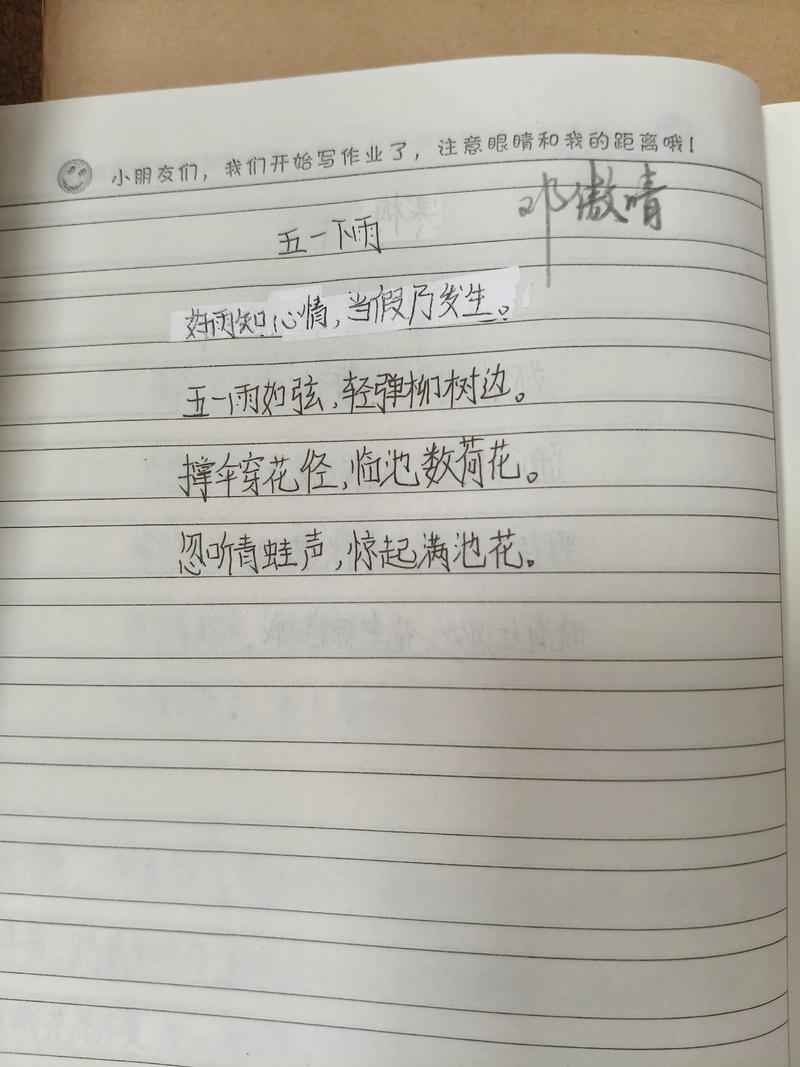 小朋友们，我们开始写作业了，注意眼睛和我的距离哦！
邓傲晴
五一下雨
好雨知心情，当假乃发生。
五一雨如弦，轻弹柳树边。
撑伞穿花径，临池数荷花。
忽听青蛙声，惊起满池花。